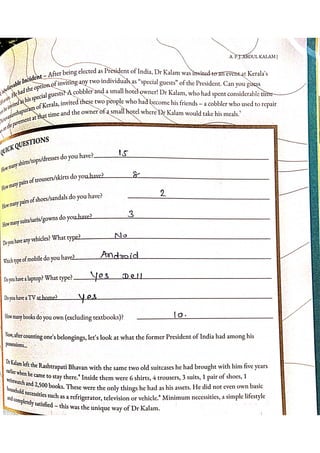 A. P. J. ABDUL KALAM |
Incident – After being elected as President of India, Dr Kalam was invited to an event at Kerala's
He had the option of inviting any two individuals as "special guests" of the President. Can you guess
invited as his special guests? A cobbler and a small hotel owner! Dr Kalam, who had spent considerable time
Kerala, invited these two people who had become his friends – a cobbler who used to repair
at the pavement at that time and the owner of a small hotel where Dr Kalam would take his meals.'
QUICK QUESTIONS
How many shirts/tops/dresses do you have? 15
How many pairs of trousers/skirts do you have? 8
How many pairs of shoes/sandals do you have? 2
How many suits/saris/gowns do you have? 3
Do you have any vehicles? What type? No
Which type of mobile do you have? Android
Do you have a laptop? What type? Yes Dell
Do you have a TV at home? Yes
How many books do you own (excluding textbooks)? 10.
Now, after counting one's belongings, let's look at what the former President of India had among his
possessions...
Dr Kalam left the Rashtrapati Bhavan with the same two old suitcases he had brought with him five years
earlier when he came to stay there." Inside them were 6 shirts, 4 trousers, 3 suits, 1 pair of shoes, 1
wristwatch and 2,500 books. These were the only things he had as his assets. He did not even own basic
household necessities such as a refrigerator, television or vehicle." Minimum necessities, a simple lifestyle
and completely satisfied – this was the unique way of Dr Kalam.